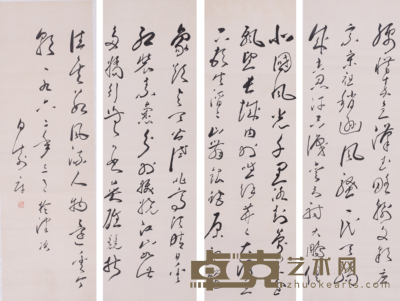 腰惜秦皇汉武略输文采唐
宗宋祖稍逊风骚一代天骄
成吉思汗只识弯弓射大雕
北国风光千里冰封万里雪
飘望长城内外惟余莽莽大河上
下顿失滔滔山舞银蛇原驰
象欲与天公试比高须晴日看
红装素裹分外妖娆江山如此
多娇引无数英雄竞折
往矣数风流人物还看今
朝一九六二年
艺术网